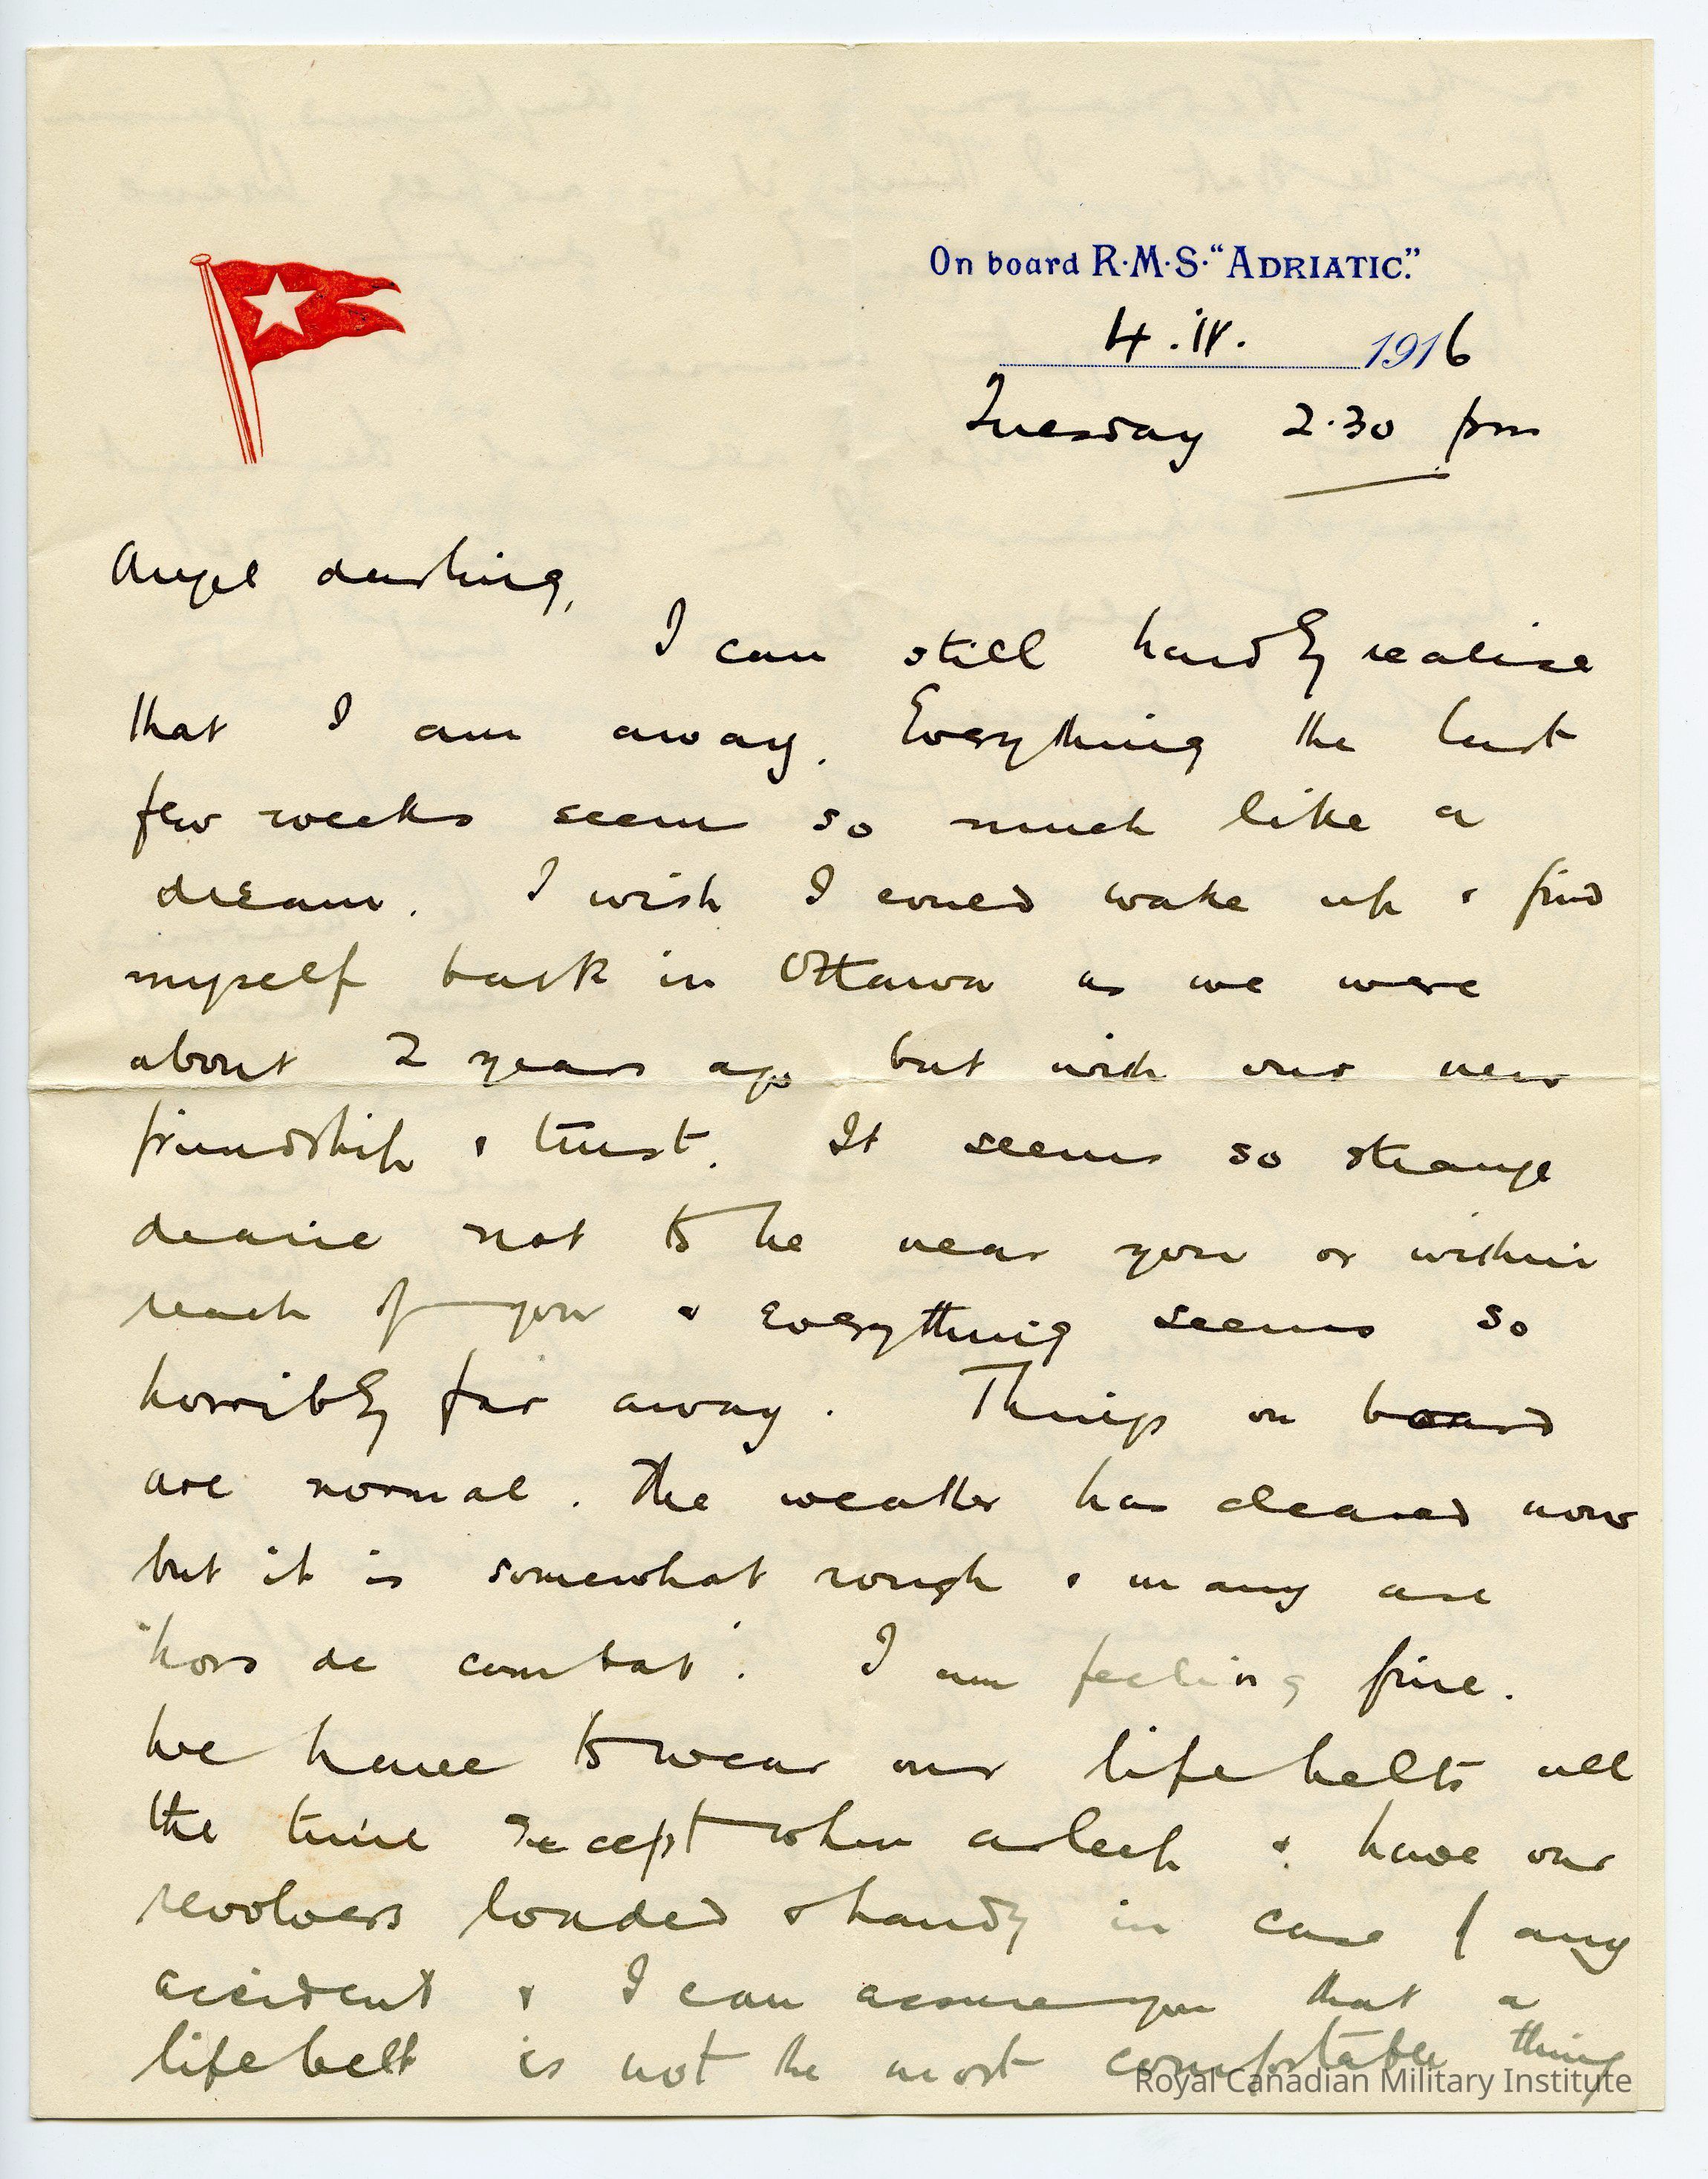 On board R·M·S·"ADRIATIC."
4.IV. 1916
Tuesday 2.30 pm
Angel darling,
I can still hardly realise
that I am away. Everything the last
few weeks seem so much like a
dream. I wish I could wake up & find
myself back in Ottawa as we were
about 2 years ago but with our new
friendship & trust. It seems so strange
dearie not to be near you or within
reach of you & everything seems so
horribly far away. Things on board
are normal. The weather has cleared now
but it is somewhat rough & many are
'hors de combat'. I am feeling fine.
We have to wear our lifebelts all
the time except when asleep & have our
revolvers loaded & handy in case of any
accident & I can assure you that a
lifebelt is not the most comfortable thing
Royal Canadian Military Institute